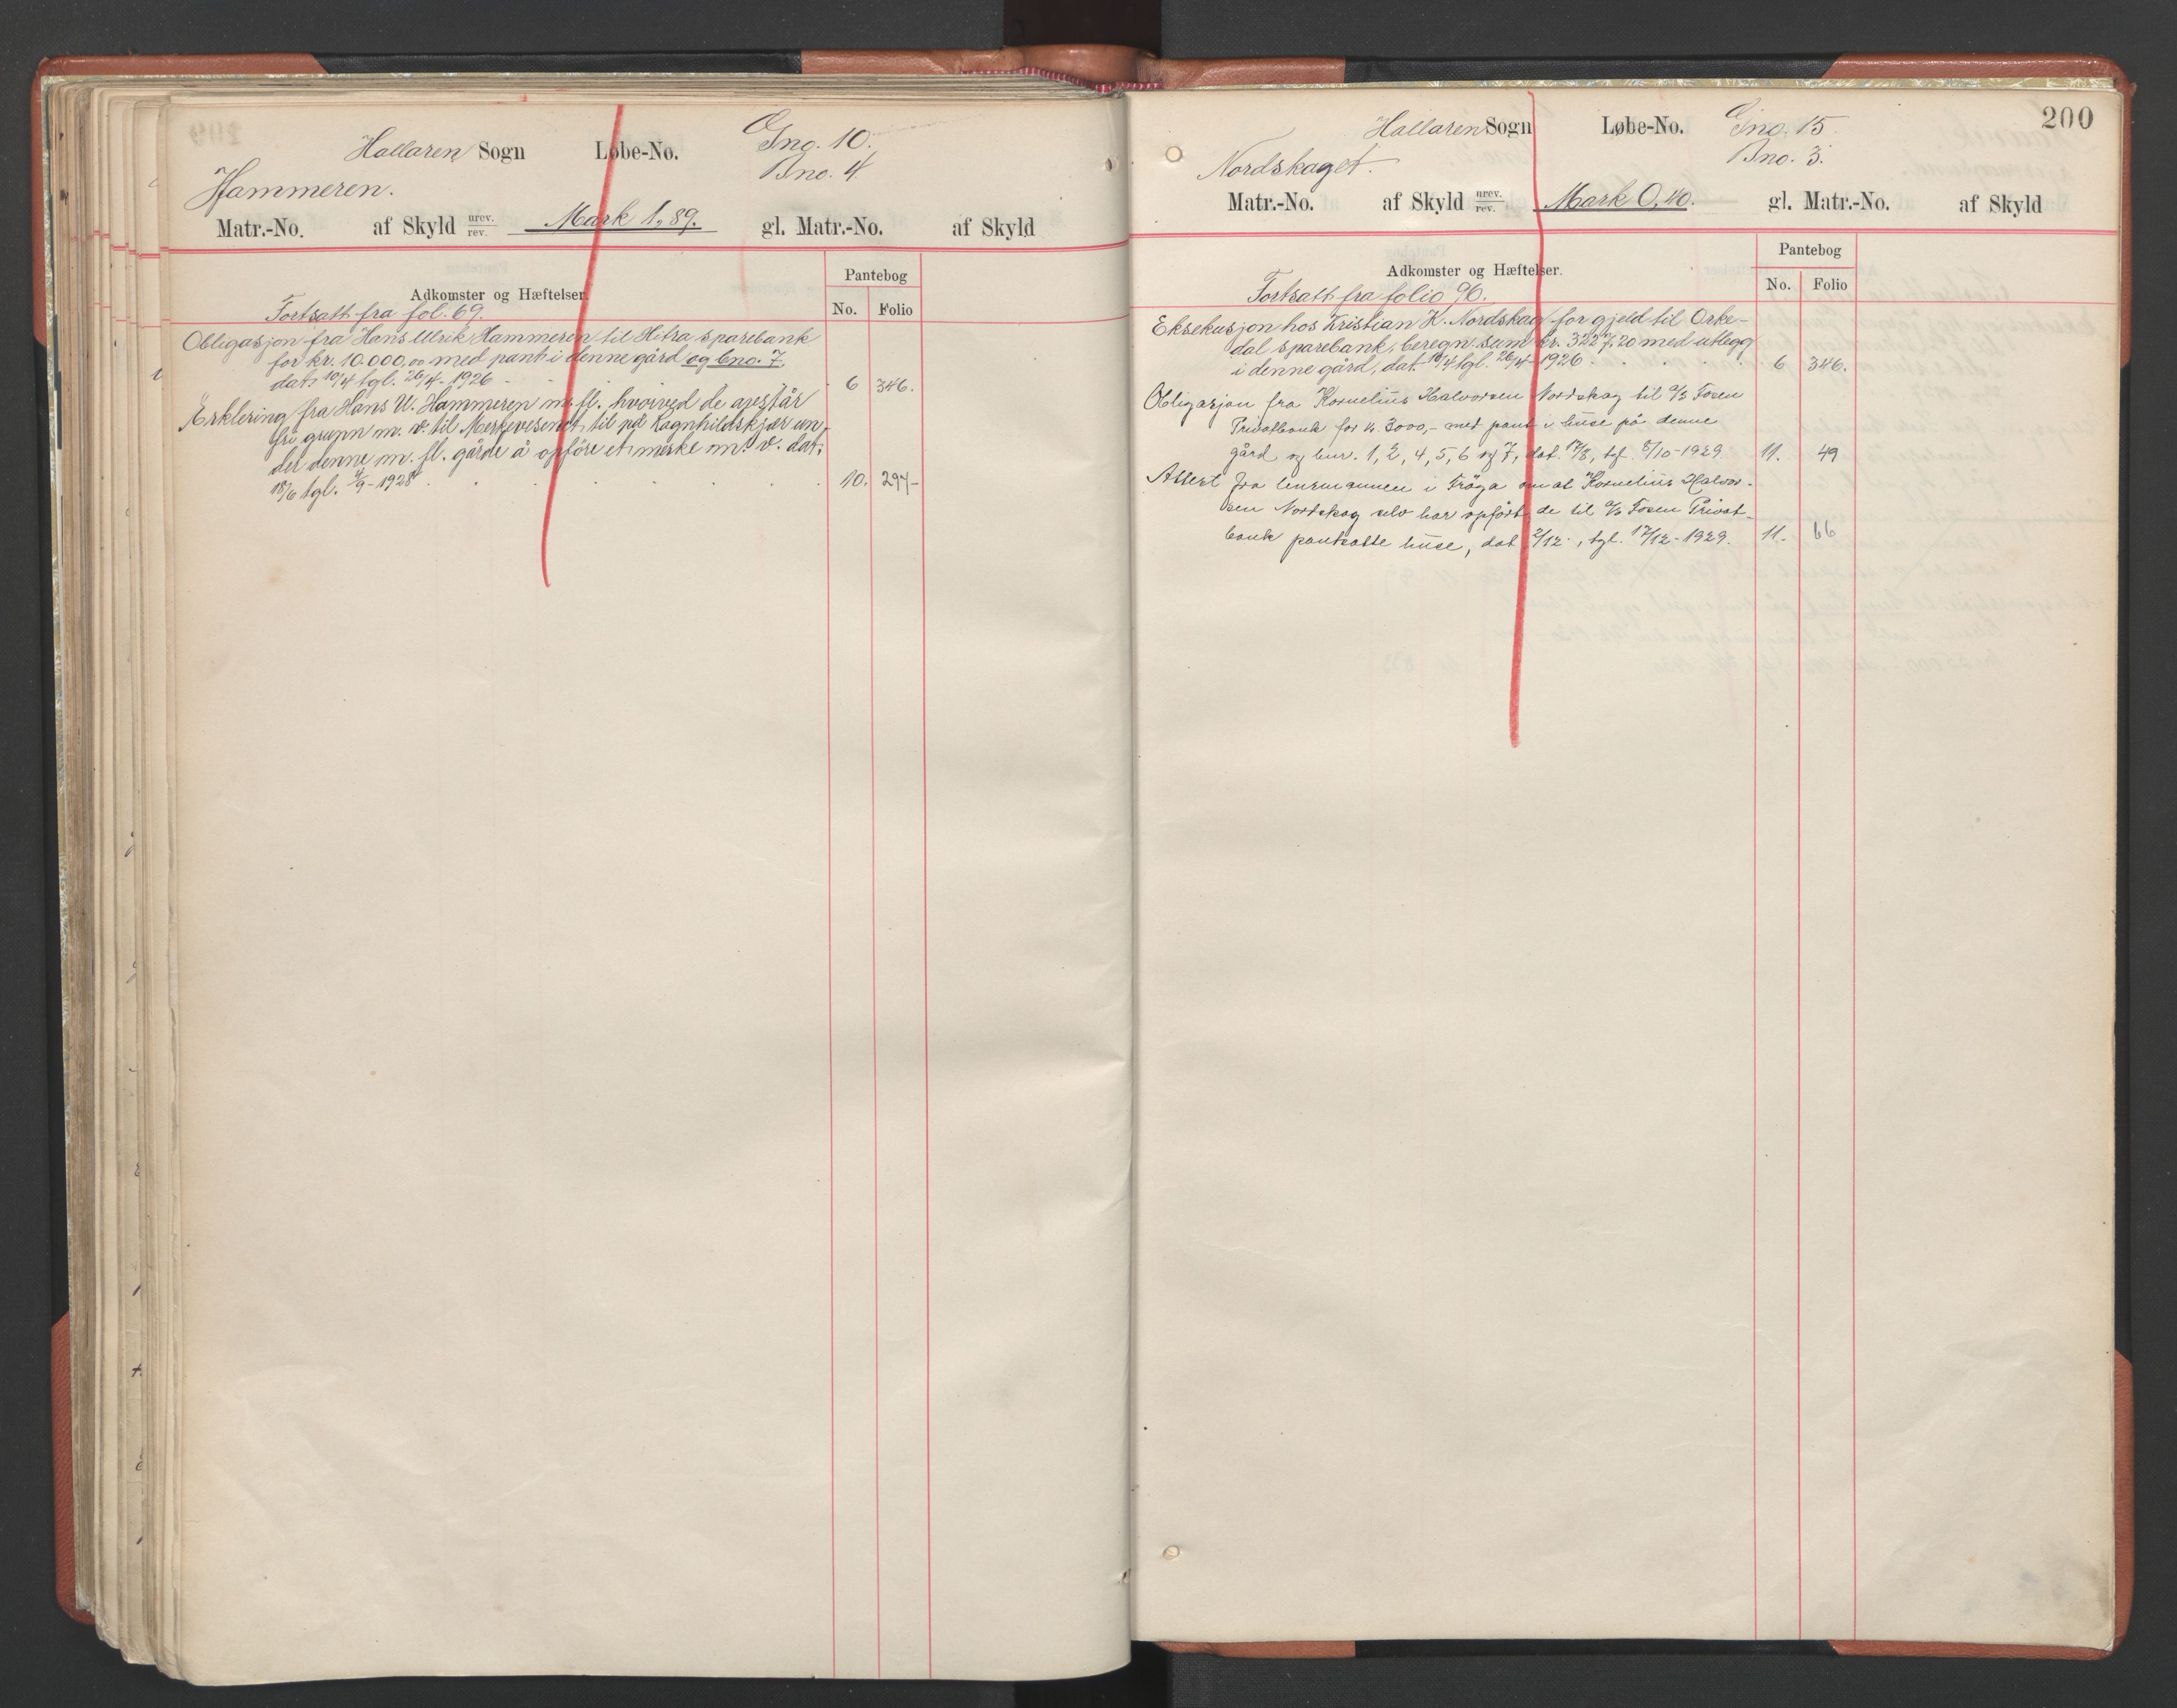 Hallaren Sogn Løbe-No. Gno. 10.
Bno. 4.
Hammeren.
Matr.-No. af Skyld urev. rev. Mark 1,89. gl. Matr.-No. af Skyld
Adkomster og Hæftelser. Pantebog
No. Folio
Fortsatt fra fol. 69.
Obligasjon fra Hans Ulrik Hammeren til Hitra sparebank
for kr. 10.000,00 med pant i denne gård og bno. 7,
dat. 10/4 tgl. 26/4-1926 6 346.
Erklering fra Hans U. Hammeren m. fl. hvorved de avestår
fri grunn m. v. til Merkevesenet til på Ragnhildskjær un-
der denne m. fl. gårde å opföre et merke m. v. dat.
18/6 tgl. 4/9-1928 10. 297-
200
Hallaren Sogn Løbe-No. Gno. 15.
Bno. 3.
Nordskaget.
Matr.-No. af Skyld urev. rev. Mark 0,40. gl. Matr.-No. af Skyld
Adkomster og Hæftelser. Pantebog
No. Folio
Fortsatt fra folio 96.
Eksekusjon hos Kristian K. Nordskag for gjeld til Orke-
dal sparebank, beregn. sum kr. 3227,20 med utlegg
i denne gård, dat. 19/4 tgl. 26/4-1926 6 346.
Obligasjon fra Kornelius Halvorsen Nordskag til a/s Fosen
Privatbank for kr. 3000,- med pant i huse på denne
gård og bnr. 1, 2, 4, 5, 6 og 7, dat. 17/8, tgl. 8/10-1929. 11. 49
Attest fra lensmannen i Fröya om at Kornelius Halvor-
sen Nordskag selv har opfört de til a/s Fosen Privat-
bank pantsatte huse, dat. 2/12, tgl. 17/12-1929. 11. 66